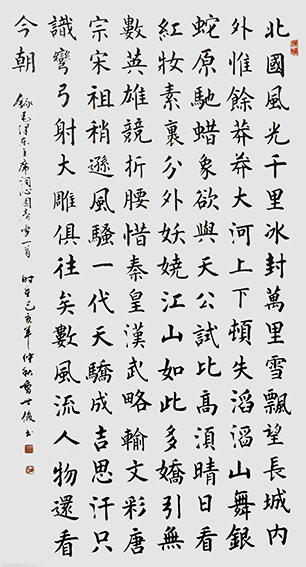 北國風光千里冰封萬里雪飄望長城內
外惟餘莽莽大河上下頓失滔滔山舞銀
蛇原馳蜡象欲與天公試比高須晴日看
紅妝素裹分外妖嬈江山如此多嬌引無
數英雄競折腰惜秦皇漢武略輸文彩唐
宗宋祖稍遜風騷一代天驕成吉思汗只
識彎弓射大雕俱往矣數風流人物還看
今朝
錄毛澤東主席詞沁園春雪一首
时在己亥年仲秋書